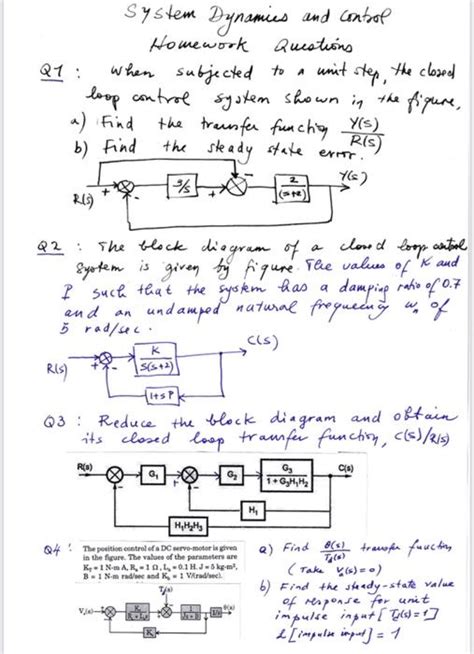 System Dynamics and Control
Homework Questions
Q1 : When subjected to a unit step, the closed
loop control system shown in the figure,
a) Find the transfer function Y(s)/R(s)
b) Find the steady state error.
R(s) + - 3/s + - 2/(s+2) Y(s)
Q2 : The block diagram of a closed loop control
system is given by figure. The values of K and
P such that the system has a damping ratio of 0.7
and an undamped natural frequency wn of
5 rad/sec.
R(s) + - K/S(S+2) C(s)
1+sP
Q3 : Reduce the block diagram and obtain
its closed loop transfer function, C(s)/R(s)
R(s) G1 + - G2 G3/1+G3H1H2 C(s)
H1
H1H2H3
Q4 : The position control of a DC servo-motor is given
in the figure. The values of the parameters are
KT = 1 N-m A, Ra = 1 Ω, La = 0.1 H. J = 5 kg-m²,
B = 1 N-m rad/sec and Kb = 1 V/(rad/sec).
Td(s)
Va(s) 1/s θ(s)
a) Find θ(s)/Td(s) transfer function
(Take Va(s)=0)
b) Find the steady-state value
of response for unit
impulse input [Td(s)=1]
L[impulse input] = 1